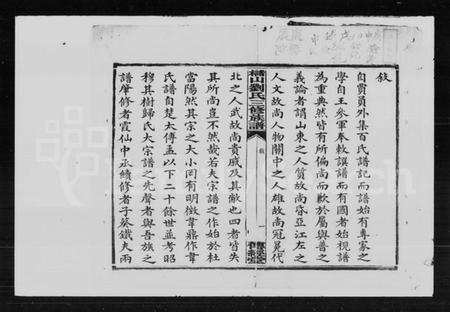 敘
自賈員外集百氏譜記而譜始有專家之
學自王參軍奉敕譔譜而有國者始視譜
為重典然皆有所偏尚而歉於屬與普之
義論者謂山東之人質故尚婚亞江左之
人文故尚人物關中之人雄故尚冠冕代
北之人武故尚貴戚及其敝也四者皆失
其所尚豈不然哉若夫宗譜之作始於杜
當陽然其宗之大小罔有明徵韋鼎作韋
氏譜自楚太傅孟以下二十餘世並考昭
穆其樹歸氏大宗譜之先聲者與吾族之
譜肇修者霞仙中丞續修者子蔡鐵夫兩
橫山劉氏三修族譜
敘